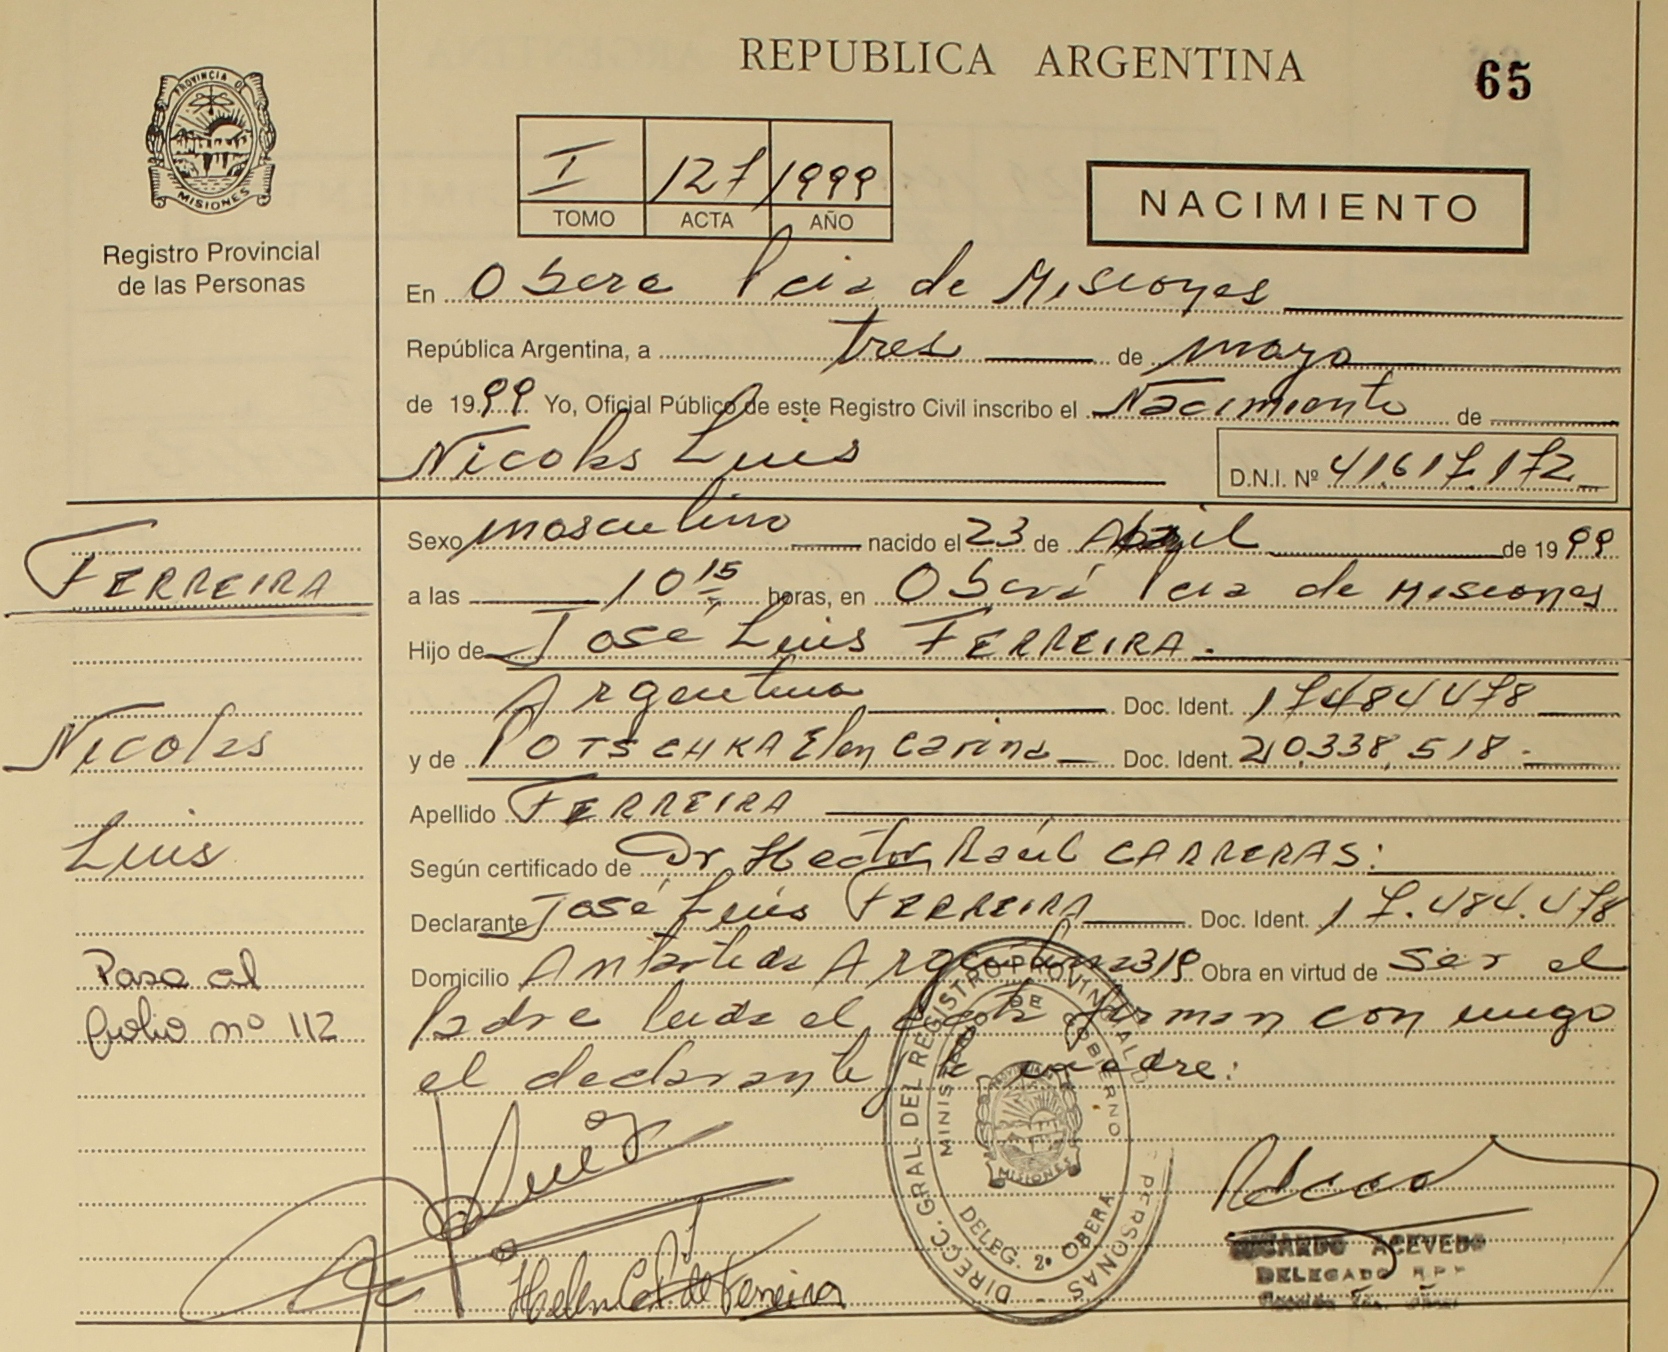 REPUBLICA ARGENTINA
65
PROVINCIA DE
MISIONES
Registro Provincial
de las Personas
I 127 1999
TOMO ACTA AÑO
NACIMIENTO
En Obera Pcia de Misiones
República Argentina, a tres de mayo
de 1999 Yo, Oficial Público de este Registro Civil inscribo el Nacimiento de
Nicolas Luis D.N.I. Nº 41.617.172
FERREIRA
Nicolas
Luis
Pasa al
folio nº 112
Sexo masculino nacido el 23 de Abril de 1999
a las 10 15 horas, en Oberá Pcia de Misiones
Hijo de José Luis FERREIRA.
Argentina Doc. Ident. 17484478
y de POTSCHKA Elen Carina Doc. Ident. 20.338.518.-
Apellido FERREIRA
Según certificado de Dr Hector Raúl CARRERAS:
Declarante José Luis FERREIRA Doc. Ident. 17.484.478
Domicilio Antartida Argentina 319 Obra en virtud de ser el
Padre leida el acta firman con migo
el declarante y la madre:
DIRECC. GRAL. DEL REGISTRO PROVINCIAL D PERSONAS
MINISTERIO DE GOBIERNO
PROVINCIA
MISIONES
DELEG. 2º OBERA
Helen C. P. de Ferreira
RICARDO ACEVEDO
DELEGADO R.P.P